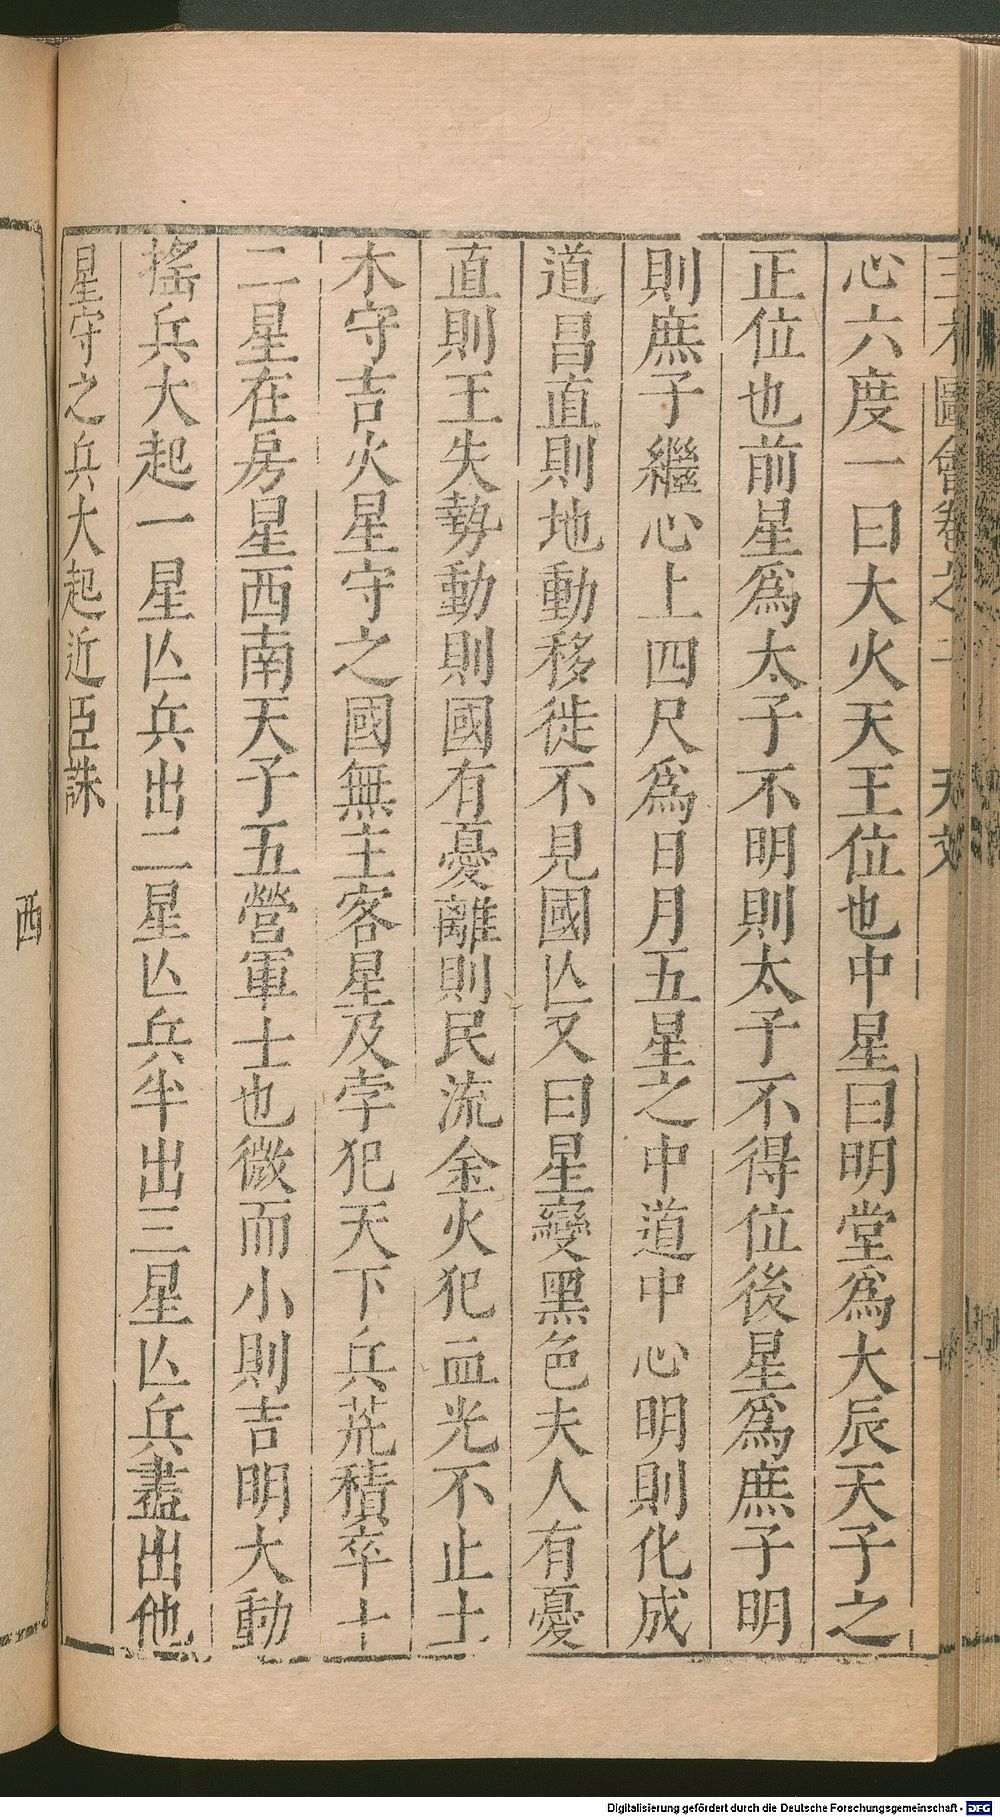 三才圖會卷之二 天文 一
心六度一曰大火天王位也中星曰明堂為大辰天子之
正位也前星為太子不明則太子不得位後星為庶子明
則庶子繼心上四尺為日月五星之中道中心明則化成
道昌直則地動移徙不見國亾又曰星變黑色夫人有憂
直則王失勢動則國有憂離則民流金火犯血光不止土
木守吉火星守之國無主客星及孛犯天下兵荒積卒十
二星在房星西南天子五營軍士也微而小則吉明大動
搖兵大起一星亾兵出二星亾兵半出三星亾兵盡出他
星守之兵大起近臣誅
西
Digitalisierung gefördert durch die Deutsche Forschungsgemeinschaft - DFG